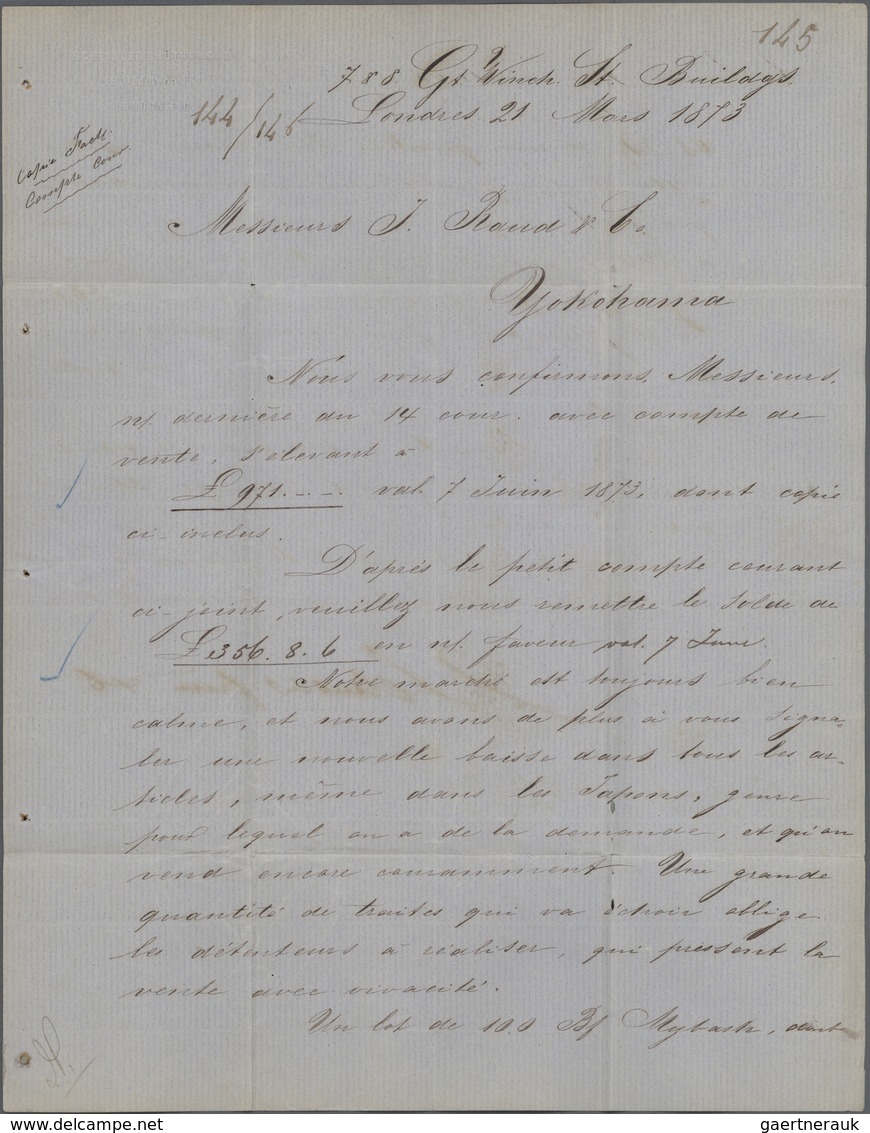 145
7 & 8. Gt Winch. St. Buildgs.
144/146 Londres 21 Mars 1873
Copie Fact.
Compte Cour
Messieurs J. Raud & Co.
Yokohama
Nous vous confirmons, Messieurs,
n/. dernière du 14 cour. avec compte de
vente, s'élevant à
£ 971. -. -. val. 7 Juin 1873, dont copie
ci-inclus.
D'après le petit compte courant
ci-joint, veuillez nous remettre le solde de
£ 356. 8. 6 en n/. faveur val. 7 June.
Notre marché est toujours bien
calme, et nous avons de plus à vous signa-
ler une nouvelle baisse dans tous les ar-
ticles, même dans les Japons, genre
pour lequel on a de la demande, et qu'on
vend encore couramment. Une grande
quantité de traites qui va échoir oblige
les détenteurs à réaliser, qui pressent la
vente avec vivacité.
Un lot de 100 Bs Mybash, dont
delcampe.net
gaertnerauk